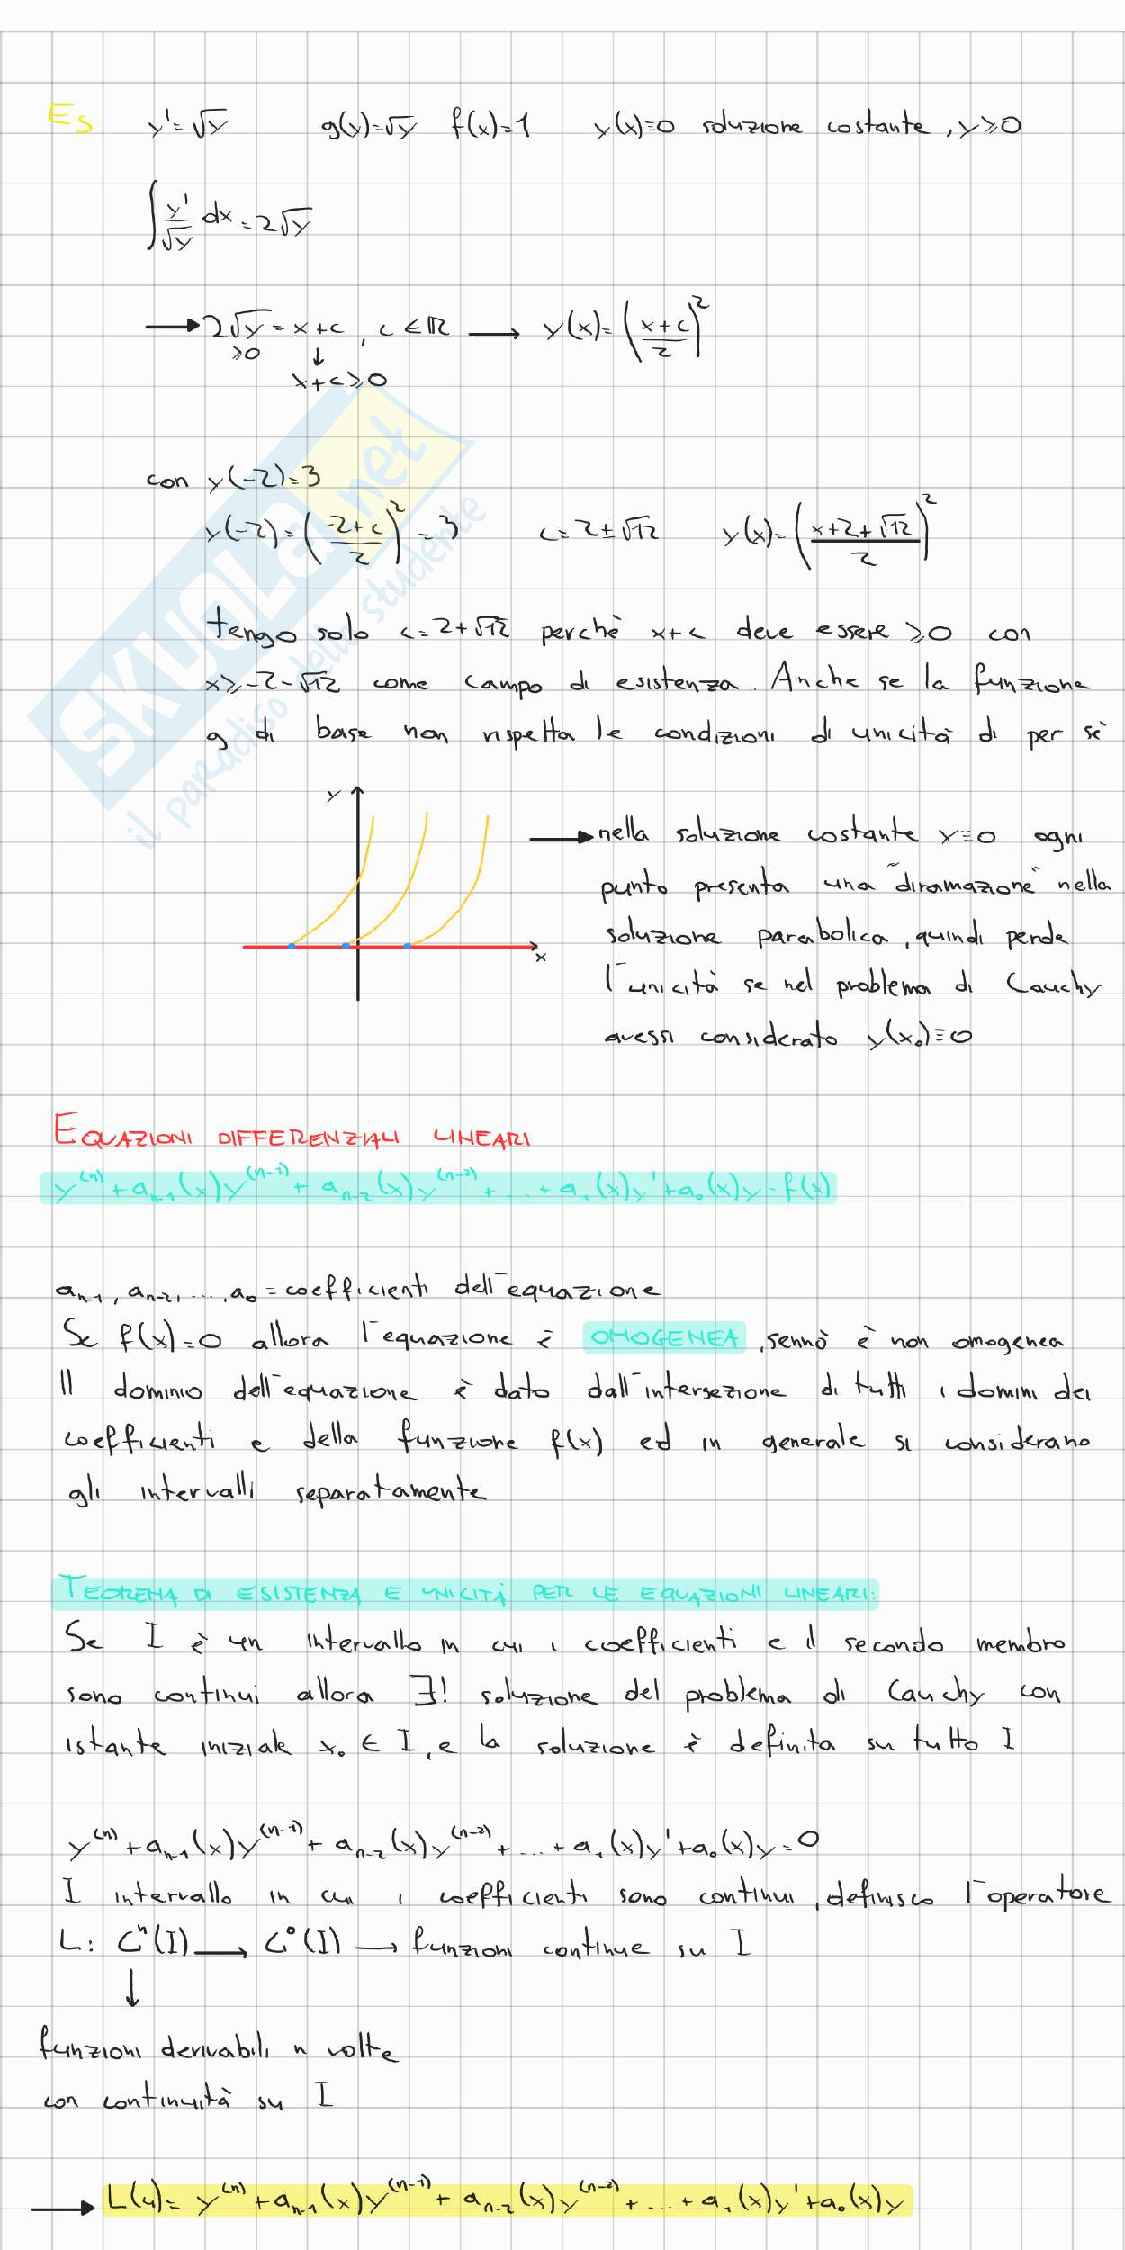 Es y'=√y g(y)=√y f(x)=1 y(x)=0 soluzione costante, y≥0
∫ y'/√y dx = 2√y
→ 2√y = x+c, c ∈ ℝ → y(x)=((x+c)/2)²
≥0 ↓
x+c≥0
con y(-2)=3
y(-2)=((-2+c)/2)²=3 c=2±√12 y(x)=((x+2+√12)/2)²
tengo solo c=2+√12 perchè x+c deve essere ≥0 con
x≥-2-√12 come campo di esistenza. Anche se la funzione
g di base non rispetta le condizioni di unicità di per sè
y
x
→ nella soluzione costante y≡0 ogni
punto presenta una "diramazione" nella
soluzione parabolica, quindi perde
l'unicità se nel problema di Cauchy
avessi considerato y(x₀)≡0
EQUAZIONI DIFFERENZIALI LINEARI
y⁽ⁿ⁾+aₙ₋₁(x)y⁽ⁿ⁻¹⁾+aₙ₋₂(x)y⁽ⁿ⁻²⁾+...+a₁(x)y'+a₀(x)y=f(x)
aₙ₋₁, aₙ₋₂, ..., a₀ = coefficienti dell'equazione
Se f(x)=0 allora l'equazione è OMOGENEA, sennò è non omogenea
Il dominio dell'equazione è dato dall'intersezione di tutti i domini dei
coefficienti e della funzione f(x) ed in generale si considerano
gli intervalli separatamente
TEOREMA DI ESISTENZA E UNICITÀ PER LE EQUAZIONI LINEARI:
Se I è un intervallo in cui i coefficienti e il secondo membro
sono continui allora ∃! soluzione del problema di Cauchy con
istante iniziale x₀ ∈ I, e la soluzione è definita su tutto I
y⁽ⁿ⁾+aₙ₋₁(x)y⁽ⁿ⁻¹⁾+aₙ₋₂(x)y⁽ⁿ⁻²⁾+...+a₁(x)y'+a₀(x)y=0
I intervallo in cui i coefficienti sono continui, definisco l'operatore
L: Cⁿ(I) → C⁰(I) → funzioni continue su I
↓
funzioni derivabili n volte
con continuità su I
→ L(y)= y⁽ⁿ⁾+aₙ₋₁(x)y⁽ⁿ⁻¹⁾+aₙ₋₂(x)y⁽ⁿ⁻²⁾+...+a₁(x)y'+a₀(x)y
SKUOLA.net
il paradiso dello studente